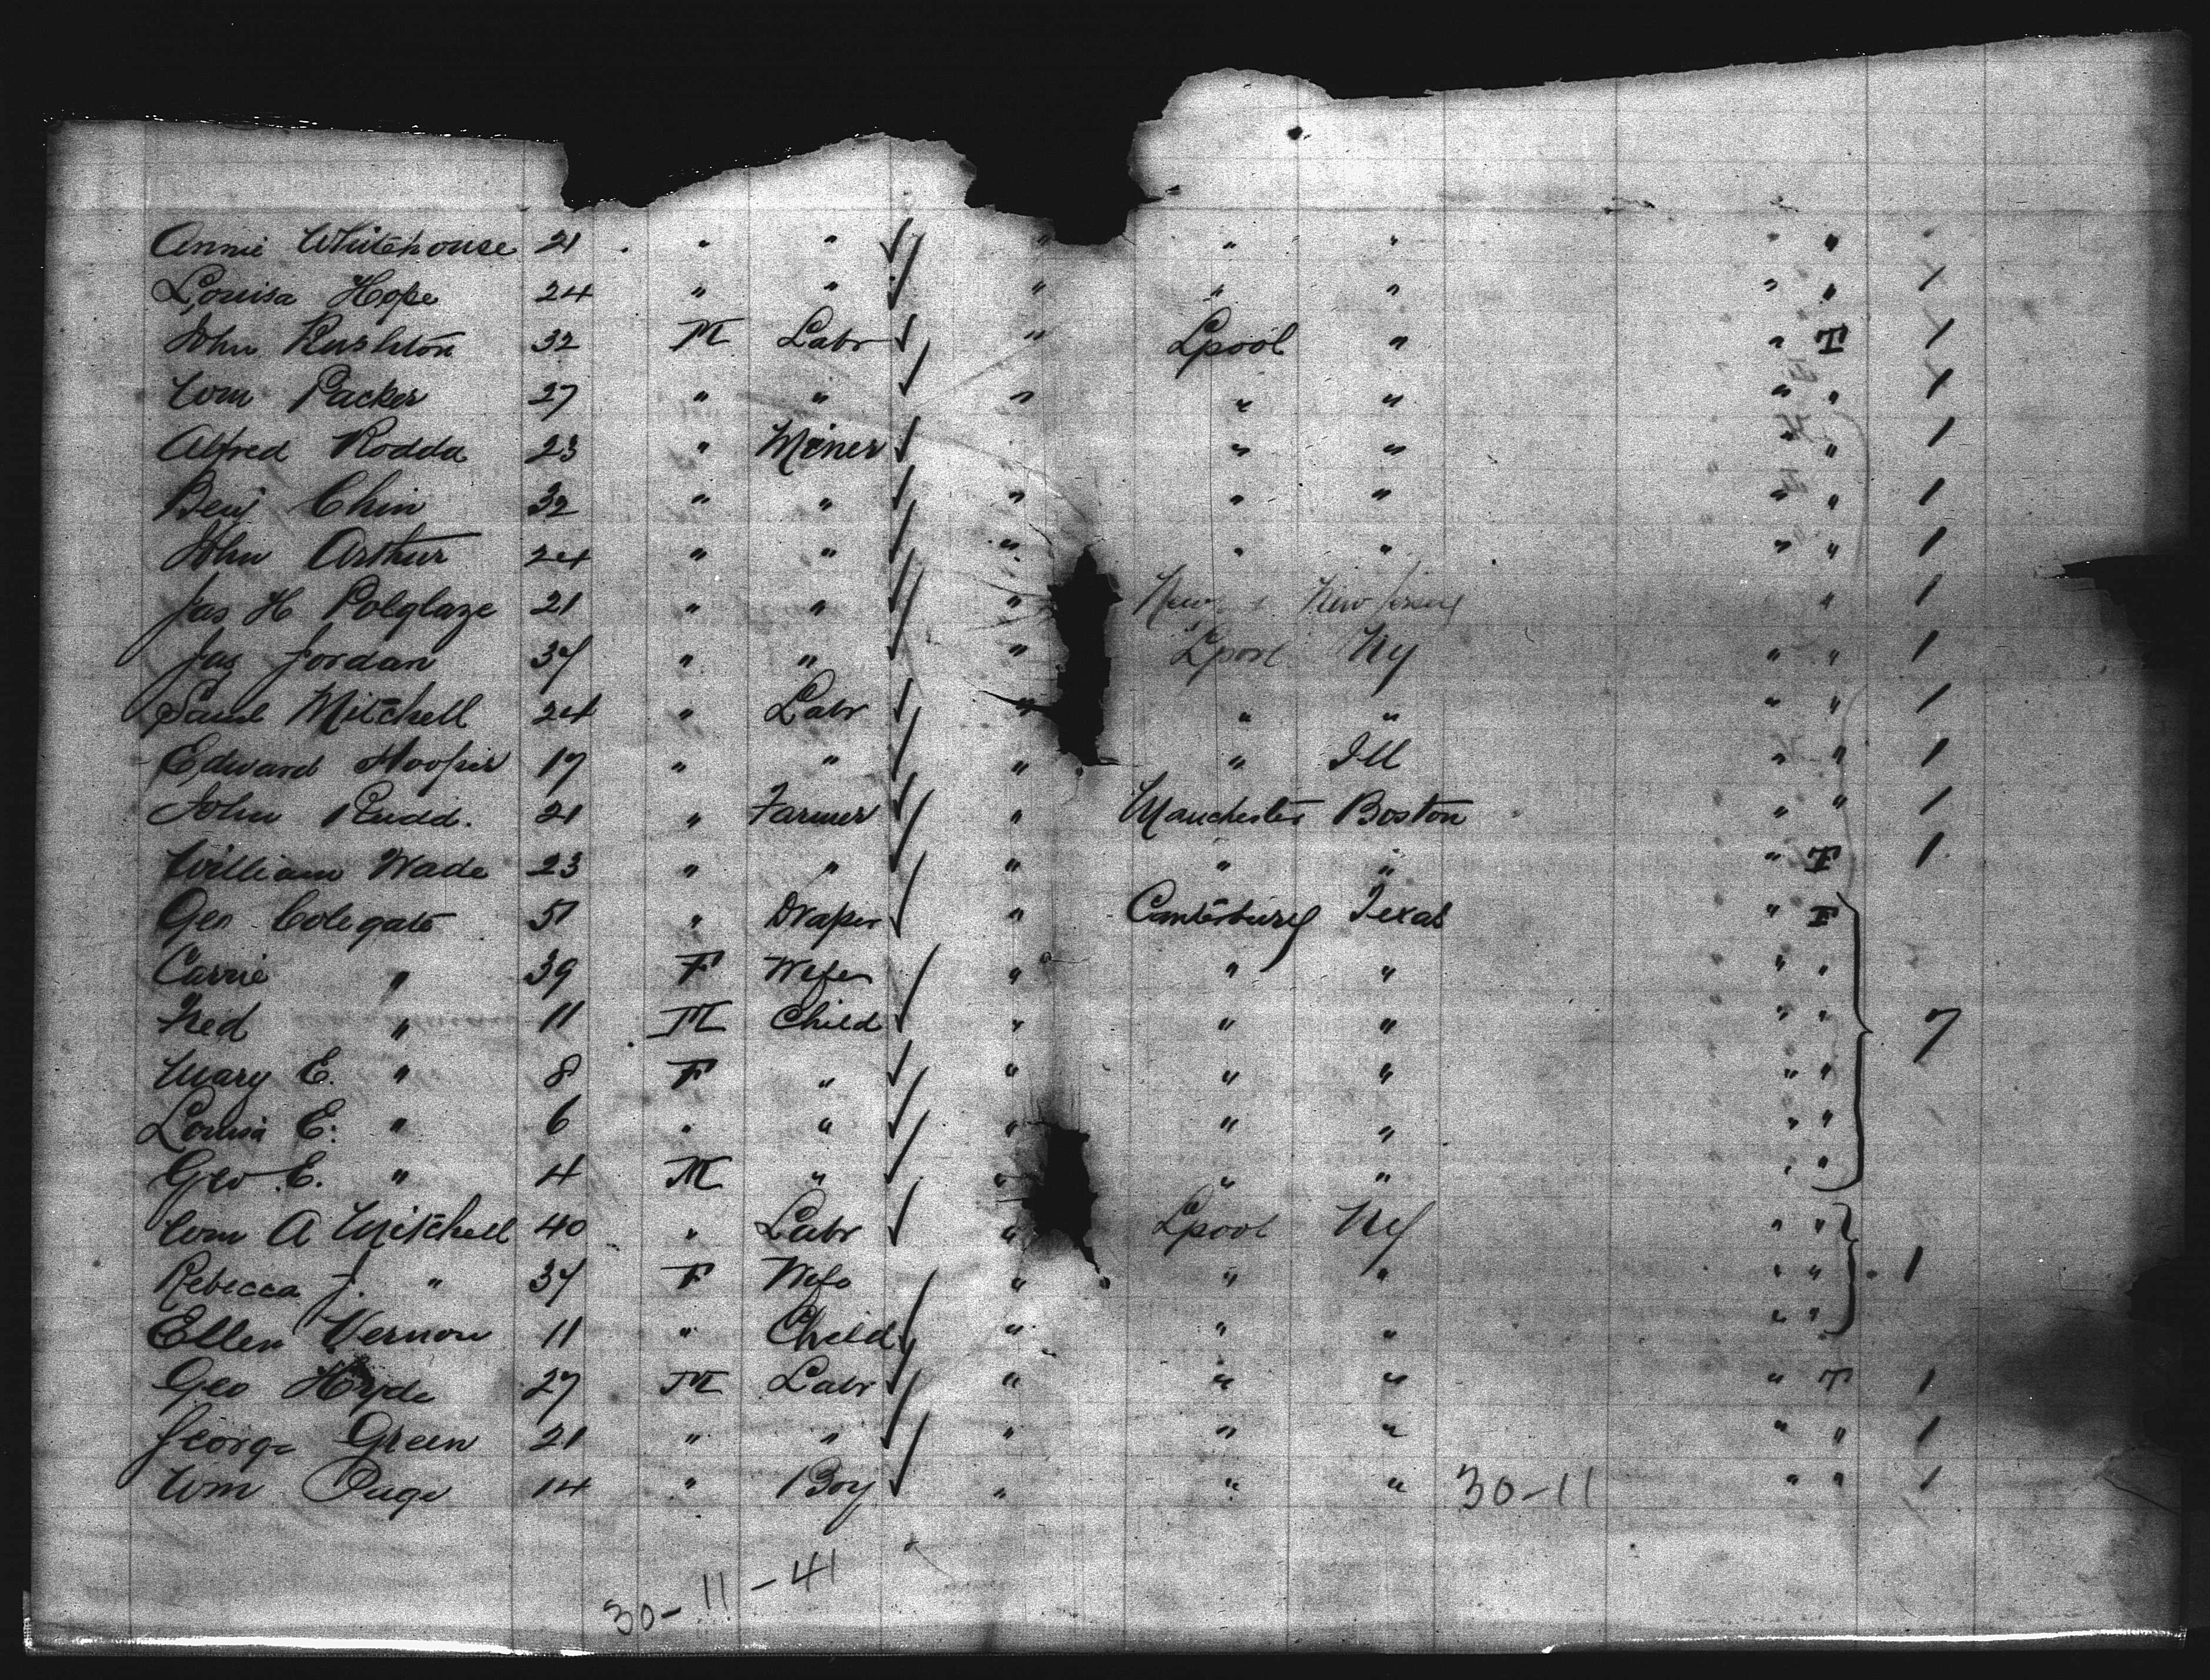 Annie Whitehouse 21 " " " " " " "
Louisa Hope 24 " " " " " " " 1
John Rushton 32 M Labr " Lpool " " T 1
Wm Packer 27 " " " " " " " 1
Alfred Rodda 23 " Miner " " " " 1
Benj Chin 32 " " " " " " " 1
John Arthur 24 " " " " " " " 1
Jas H Polglaze 21 " " " New Jersey " 1
Jas Jordan 37 " " " Lpool NY " " 1
Saml Mitchell 24 " Labr " " " " " 1
Edward Hooper 17 " " " " Ill " " 1
John Rudd. 21 " Farmer " Manchester Boston " " 1
William Wade 23 " " " " " " T 1
Geo Colegate 51 " Draper " Canterbury Texas " F
Carrie " 39 F Wife " " " " "
Fred " 11 M Child " " " " " 7
Mary E. " 8 F " " " " " "
Louisa E. " 6 " " " " " " "
Geo. E. " 4 M " " " " " "
Wm A Mitchell 40 " Labr " Lpool NY " "
Rebecca J. " 37 F Wife " " " " " 1
Ellen Vernon 11 " Child " " " " "
Geo Hyde 27 M Labr " " " " T 1
George Green 21 " " " " " " " 1
Wm 14 " Boy " " " 30-11 " " 1
30-11-41